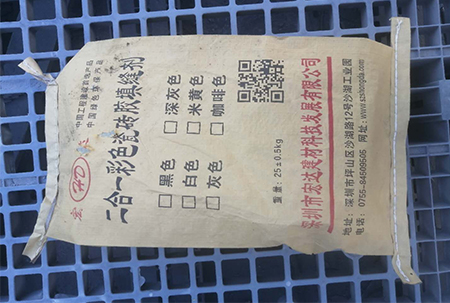 中国工程建设推荐产品
中国绿色环保水泥
宏
HD
达
二合一彩色瓷砖胶填缝剂
□黑色 □深灰色
□白色 □米黄色
□灰色 □咖啡色
重量：25±0.5kg
深圳市宏达建材科技发展有限公司
地址：深圳市坪山区沙湖路12号沙湖工业园
电话：0755-84509505 网址：www.szshongda.com